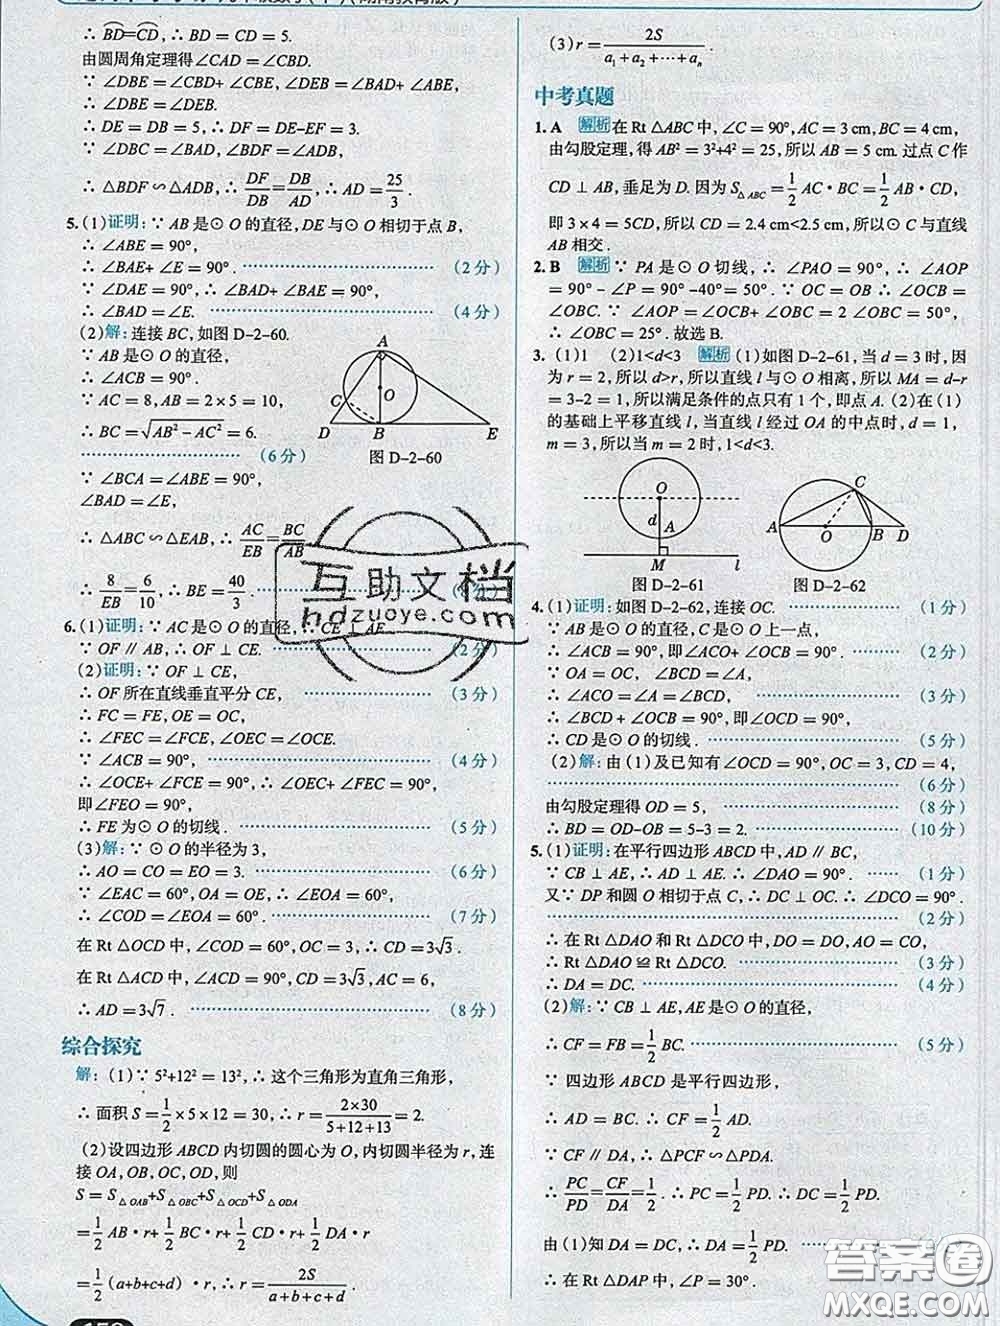 ∴ BD=CD,∴ BD = CD = 5.
由圆周角定理得∠CAD = ∠CBD.
∵ ∠DBE = ∠CBD+ ∠CBE, ∠DEB = ∠BAD+ ∠ABE,
∴ ∠DBE = ∠DEB.
∴ DE = DB = 5,∴ DF = DE-EF = 3.
∵ ∠DBC = ∠BAD, ∠BDF = ∠ADB,
∴ △BDF ∽ △ADB,∴ DF/DB = DB/AD,∴ AD = 25/3.
5. (1)证明:∵ AB 是⊙O 的直径,DE 与⊙O 相切于点 B,
∴ ∠ABE = 90°,
∴ ∠BAE+ ∠E = 90°. (2 分)
∵ ∠DAE = 90°,∴ ∠BAD+ ∠BAE = 90°,
∴ ∠BAD= ∠E. (4 分)
(2)解:连接 BC,如图 D-2-60.
∵ AB 是⊙O 的直径,
∴ ∠ACB = 90°.
∵ AC = 8,AB = 2×5 = 10,
∴ BC=√(AB²-AC²) = 6.
(6 分)
∵ ∠BCA = ∠ABE = 90°,
∠BAD = ∠E,
∴ △ABC ∽ △EAB,∴ AC/EB=BC/AB
∴ 8/EB=6/10,∴ BE=40/3.
A
C
O
D
B
E
图 D-2-60
6. (1)证明:∵ AC 是⊙O 的直径,∴ CE ⊥ AE.
∵ OF ∥ AB,∴ OF ⊥ CE. (2 分)
(2)证明:∵ OF ⊥ CE,
∴ OF 所在直线垂直平分 CE, (3 分)
∴ FC = FE,OE = OC,
∴ ∠FEC = ∠FCE, ∠OEC = ∠OCE.
∵ ∠ACB = 90°, (4 分)
∴ ∠OCE+ ∠FCE = 90°,∴ ∠OEC+ ∠FEC = 90°,
即∠FEO = 90°,
∴ FE 为⊙O 的切线. (5 分)
(3)解:∵ ⊙O 的半径为 3,
∴ AO = CO = EO = 3. (6 分)
∵ ∠EAC = 60°,OA = OE,∴ ∠EOA = 60°,
∴ ∠COD = ∠EOA = 60°. (7 分)
在 Rt △OCD 中,∠COD = 60°,OC = 3,∴ CD = 3√3.
在 Rt △ACD 中,∠ACD = 90°,CD = 3√3,AC = 6,
∴ AD = 3√7. (8 分)
综合探究
解:(1)∵ 5²+12² = 13²,∴ 这个三角形为直角三角形,
∴ 面积 S = 1/2×5×12 = 30,∴ r = 2×30/(5+12+13) = 2.
(2)设四边形 ABCD 内切圆的圆心为 O,内切圆半径为 r,连
接 OA,OB,OC,OD,则
S = S△OAB+S△OBC+S△OCD+S△ODA
=1/2 AB·r+1/2 BC·r+1/2 CD·r+1/2 DA·r
=1/2(a+b+c+d)·r,∴ r = 2S/(a+b+c+d).
(3) r = 2S/(a₁+a₂+⋯+aₙ).
中考真题
1. A 解析 在 Rt △ABC 中,∠C = 90°,AC = 3 cm,BC = 4 cm,
由勾股定理,得 AB² = 3²+4² = 25,所以 AB = 5 cm. 过点 C 作
CD ⊥ AB,垂足为 D. 因为 S△ABC=1/2 AC·BC=1/2 AB·CD,
即 3×4 = 5CD,所以 CD = 2.4 cm<2.5 cm,所以⊙C 与直线
AB 相交.
2. B 解析 ∵ PA 是⊙O 切线,∴ ∠PAO = 90°,∴ ∠AOP
= 90°- ∠P = 90°-40°= 50°. ∵ OC = OB ∴ ∠OCB =
∠OBC. ∵ ∠AOP = ∠OCB+ ∠OBC = 2 ∠OBC = 50°,
∴ ∠OBC = 25°. 故选 B.
3. (1)1 (2)1<d<3 解析 (1)如图 D-2-61,当 d = 3 时,因
为 r = 2,所以 d>r,所以直线 l 与⊙O 相离,所以 MA = d-r
= 3-2 = 1,所以满足条件的点只有 1 个,即点 A. (2)在(1)
的基础上平移直线 l,当直线 l 经过 OA 的中点时,d = 1,
m = 3,所以当 m = 2 时,1<d<3.
O
d
A
M
l
图 D-2-61
C
A
O
B
D
图 D-2-62
4. (1)证明:如图 D-2-62,连接 OC. (1 分)
∵ AB 是⊙O 的直径,C 是⊙O 上一点,
∴ ∠ACB = 90°,即∠ACO+ ∠OCB = 90°. (2 分)
∵ OA = OC, ∠BCD = ∠A,
∴ ∠ACO = ∠A = ∠BCD, (3 分)
∴ ∠BCD + ∠OCB = 90°,即∠OCD = 90°,
∴ CD 是⊙O 的切线. (5 分)
(2)解:由(1)及已知有∠OCD = 90°,OC = 3,CD = 4,
(6 分)
由勾股定理得 OD = 5, (8 分)
∴ BD = OD-OB = 5-3 = 2. (10 分)
5. (1)证明:在平行四边形 ABCD 中,AD ∥ BC,
∵ CB ⊥ AE,∴ AD ⊥ AE. ∴ ∠DAO = 90°. (1 分)
又∵ DP 和圆 O 相切于点 C,∴ DC ⊥ OC. ∴ ∠DCO = 90°.
(2 分)
∴ 在 Rt △DAO 和 Rt △DCO 中,DO = DO,AO = CO,
∴ Rt △DAO ≌ Rt △DCO. (3 分)
∴ DA = DC. (4 分)
(2)解:∵ CB ⊥ AE,AE 是⊙O 的直径,
∴ CF = FB =1/2 BC. (5 分)
∵ 四边形 ABCD 是平行四边形,
∴ AD = BC. ∴ CF =1/2 AD.
∵ CF ∥ DA,∴ △PCF ∽ △PDA.
∴ PC/PD=CF/DA=1/2. ∴ PC =1/2 PD. ∴ DC =1/2 PD.
由(1)知 DA = DC,∴ DA =1/2 PD.
∴ 在 Rt △DAP 中,∠P = 30°.
互助文档
hdzuoye.com
答案圈
MXQE.COM